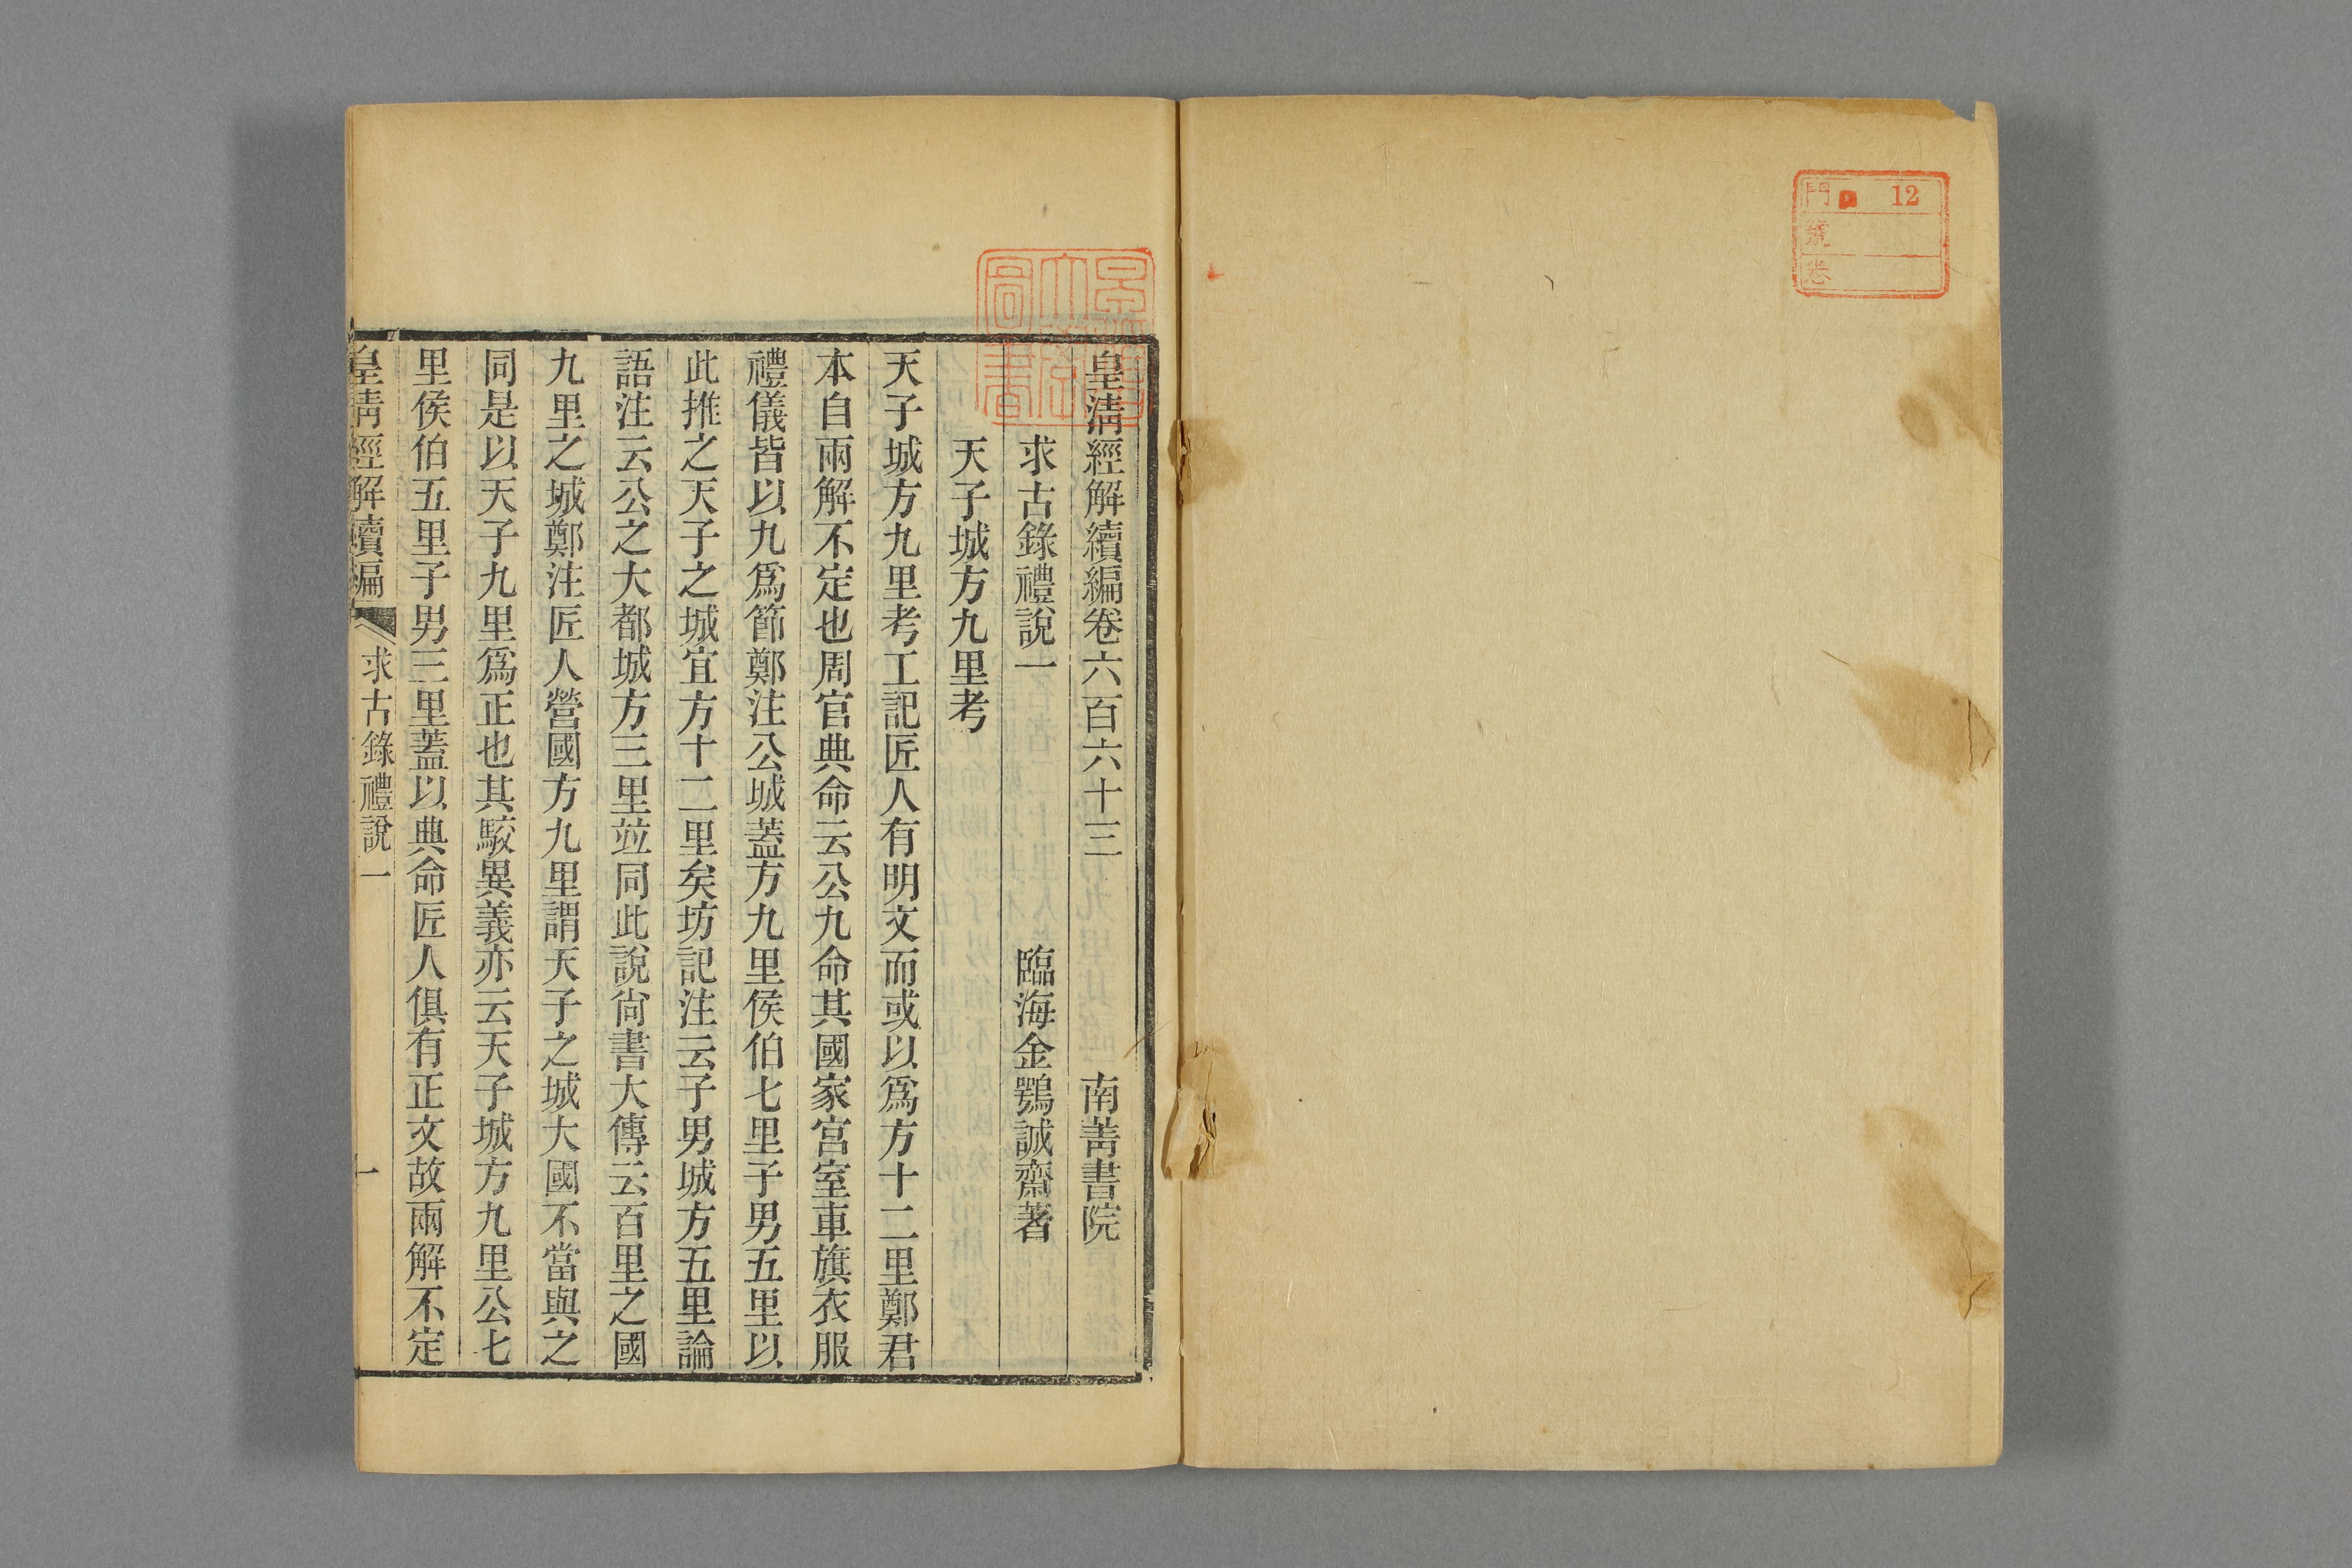 門 12
號
卷
皇清經解續編卷六百六十三 南菁書院
求古錄禮說一 臨海金鶚誠齋著
天子城方九里考
天子城方九里考工記匠人有明文而或以爲方十二里鄭君
本自兩解不定也周官典命云公九命其國家宮室車旗衣服
禮儀皆以九爲節鄭注公城蓋方九里侯伯七里子男五里以
此推之天子之城宜方十二里矣坊記注云子男城方五里論
語注云公之大都城方三里竝同此說尙書大傳云百里之國
九里之城鄭注匠人營國方九里謂天子之城大國不當與之
同是以天子九里爲正也其駮異義亦云天子城方九里公七
里侯伯五里子男三里蓋以典命匠人俱有正文故兩解不定
皇清經解續編 求古錄禮說一 一